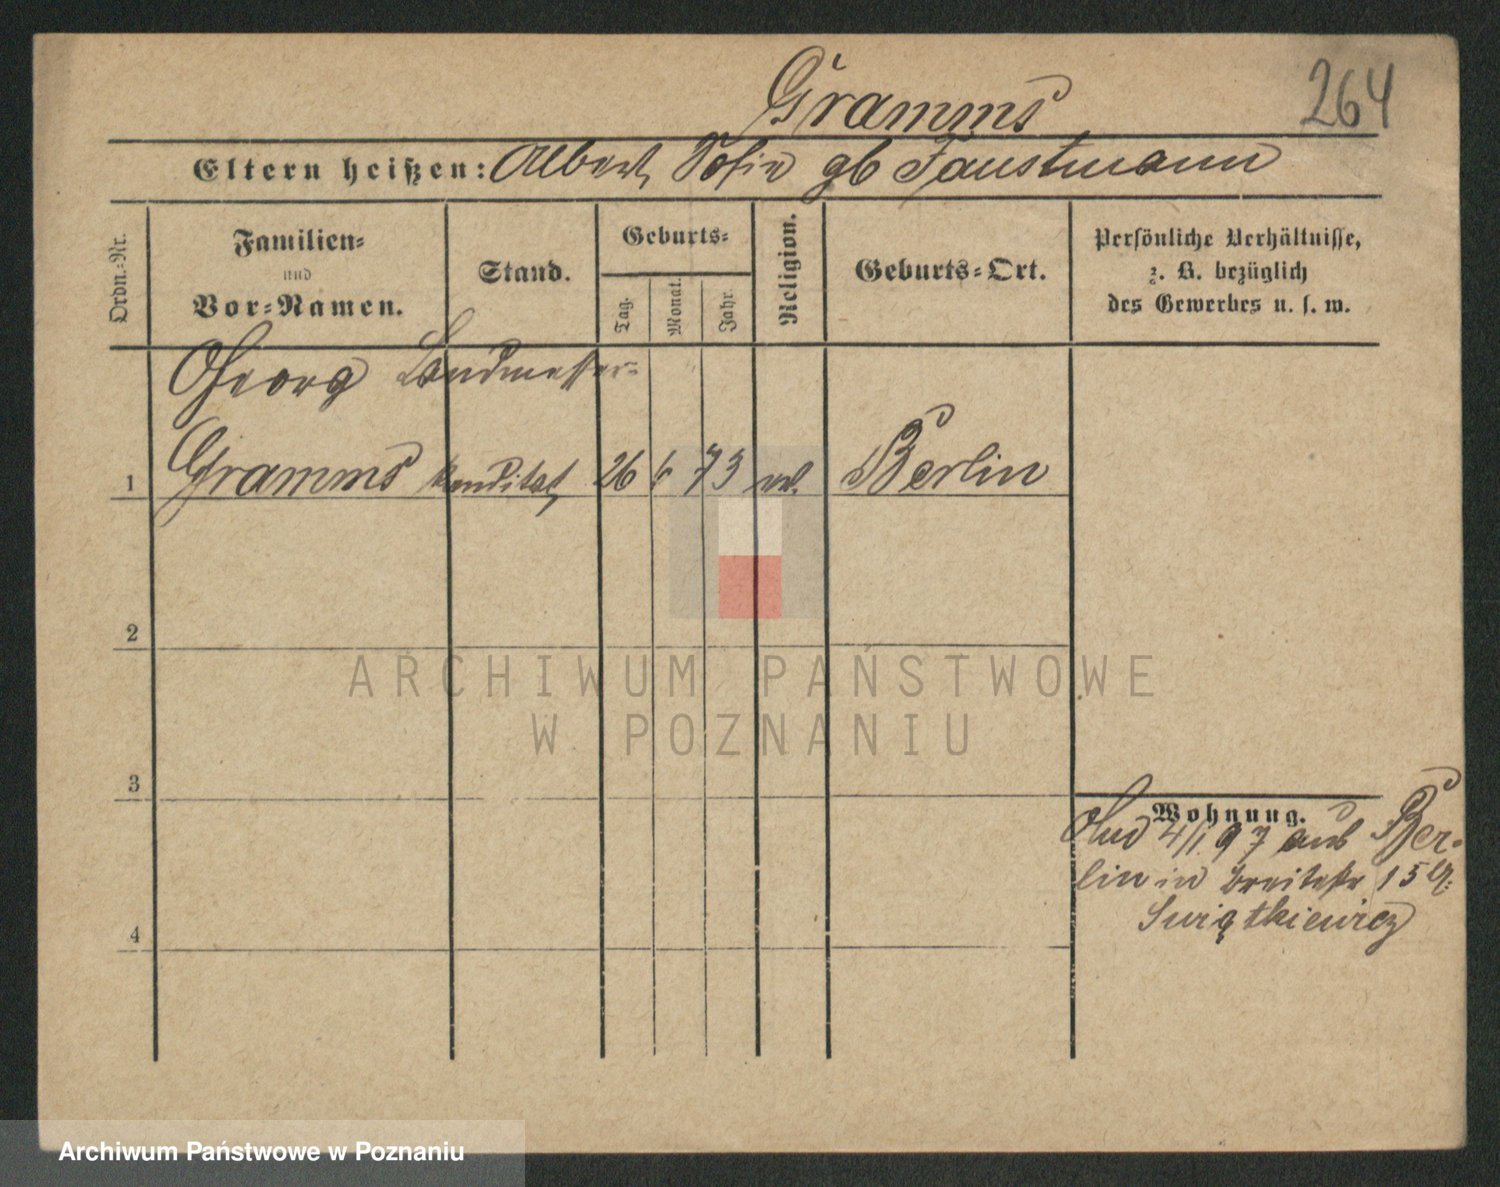 Gramms
264
Eltern heißen: Albert, Sofie gb Faustmann
Ordn.-Nr.
Familien-
und
Vor-Namen.
Stand.
Geburts-
Tag.
Monat.
Jahr.
Religion.
Geburts-Ort.
Persönliche Verhältnisse,
z. B. bezüglich
des Gewerbes u. s. w.
Georg Landmesser-
1 Gramms kandidat 26 6 73 Berlin
2
3
4
Wohnung.
4/1 97 aus Ber-
lin in Breitestr 15 b/
Swiątkiewicz
ARCHIWUM PAŃSTWOWE
W POZNANIU
Archiwum Państwowe w Poznaniu